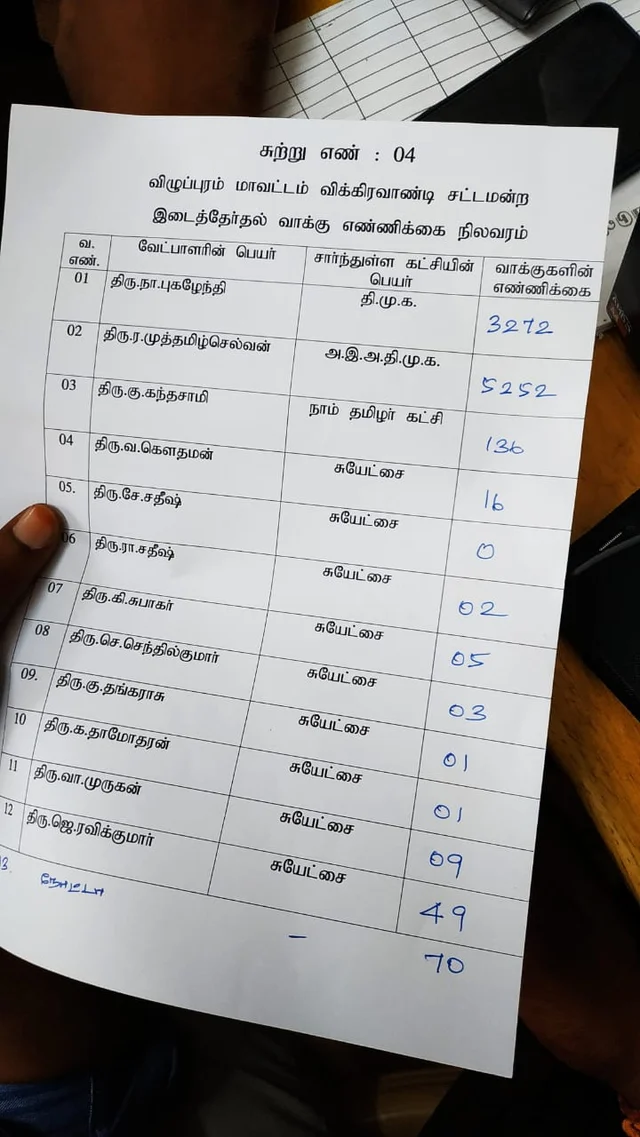 சுற்று எண் : 04
விழுப்புரம் மாவட்டம் விக்கிரவாண்டி சட்டமன்ற
இடைத்தேர்தல் வாக்கு எண்ணிக்கை நிலவரம்
வ. எண். வேட்பாளரின் பெயர் சார்ந்துள்ள கட்சியின் பெயர் வாக்குகளின் எண்ணிக்கை
01 திரு.நா.புகழேந்தி தி.மு.க. 3272
02 திரு.ர.முத்தமிழ்செல்வன் அ.இ.அ.தி.மு.க. 5252
03 திரு.கு.கந்தசாமி நாம் தமிழர் கட்சி 136
04 திரு.வ.கௌதமன் சுயேட்சை 16
05. திரு.சே.சதீஷ் சுயேட்சை 0
06 திரு.ரா.சதீஷ் சுயேட்சை 02
07 திரு.கி.சுபாகர் சுயேட்சை 05
08 திரு.செ.செந்தில்குமார் சுயேட்சை 03
09. திரு.கு.தங்கராசு சுயேட்சை 01
10 திரு.க.தாமோதரன் சுயேட்சை 01
11 திரு.வா.முருகன் சுயேட்சை 09
12 திரு.ஜெ.ரவிக்குமார் சுயேட்சை 49
13. நோட்டா - 70